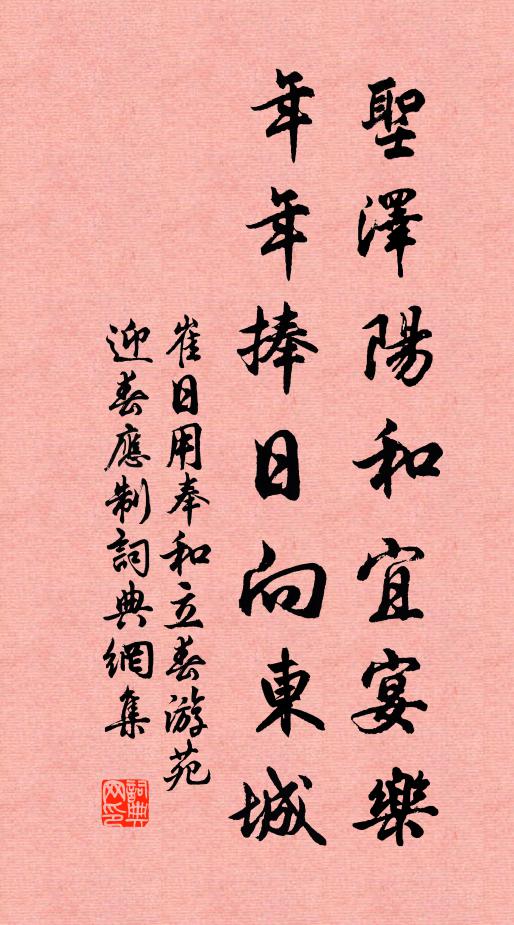 聖澤陽和宜宴樂
年年捧日向東城
崔日用奉和立春游苑
迎春應制詞典網集
詞典網印